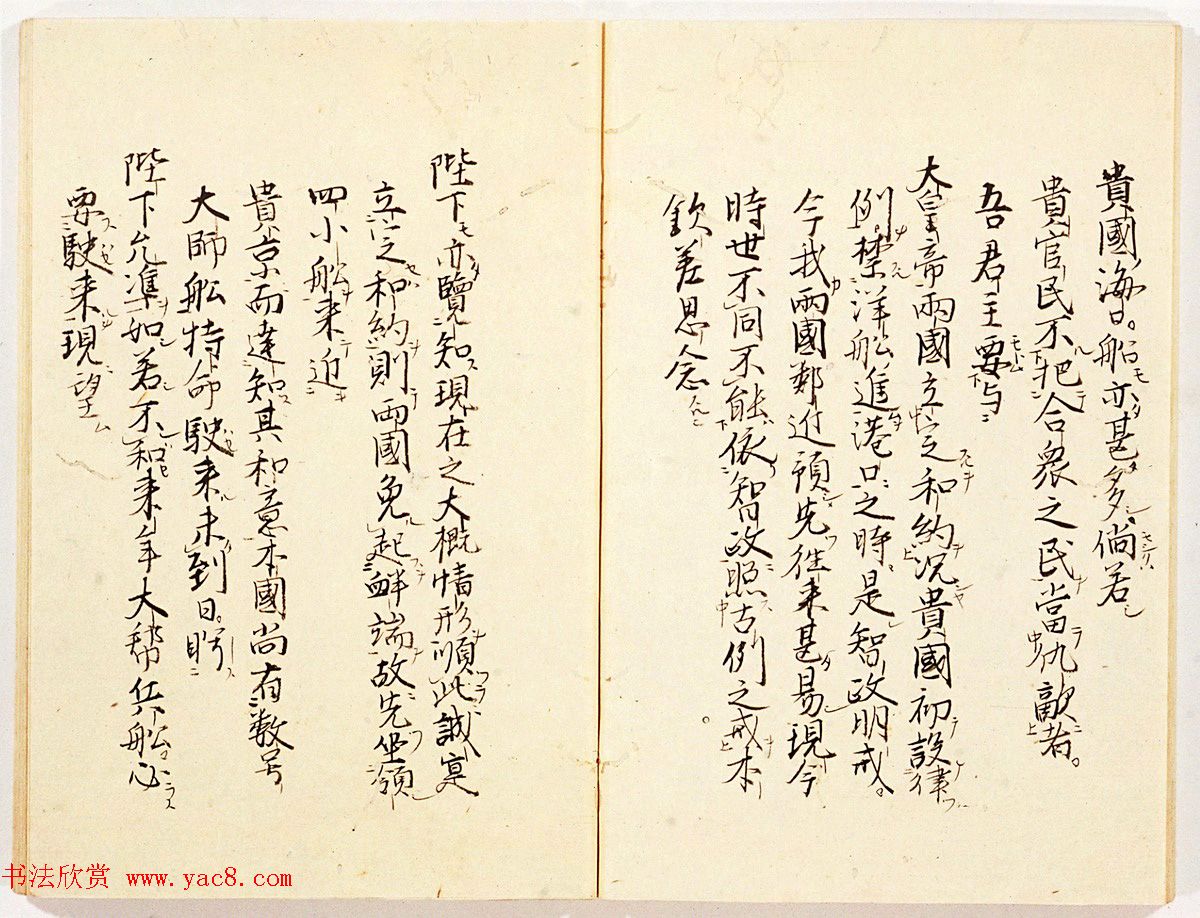 貴國海口。船亦甚多、倘若
貴官民不把合衆之民當仇敵者。
吾君主要与
大皇帝兩國立定和約况貴國初設律
例。禁洋船進港口之時是智政明戒。
今我兩國鄰近預先往来甚易現今
時世不同不能依智政照古例之戒本
欽差思念。
陛下亦覽知現在之大概情形順此誠寔
立定和約則兩國免起衅端故先坐領
四小船来近
貴京而達知其和意本國尚有数号
大師船特命駛来未到日。盼
陛下允準如若不和来年大帮兵船必
要駛来現望
书法欣赏 www.yac8.com